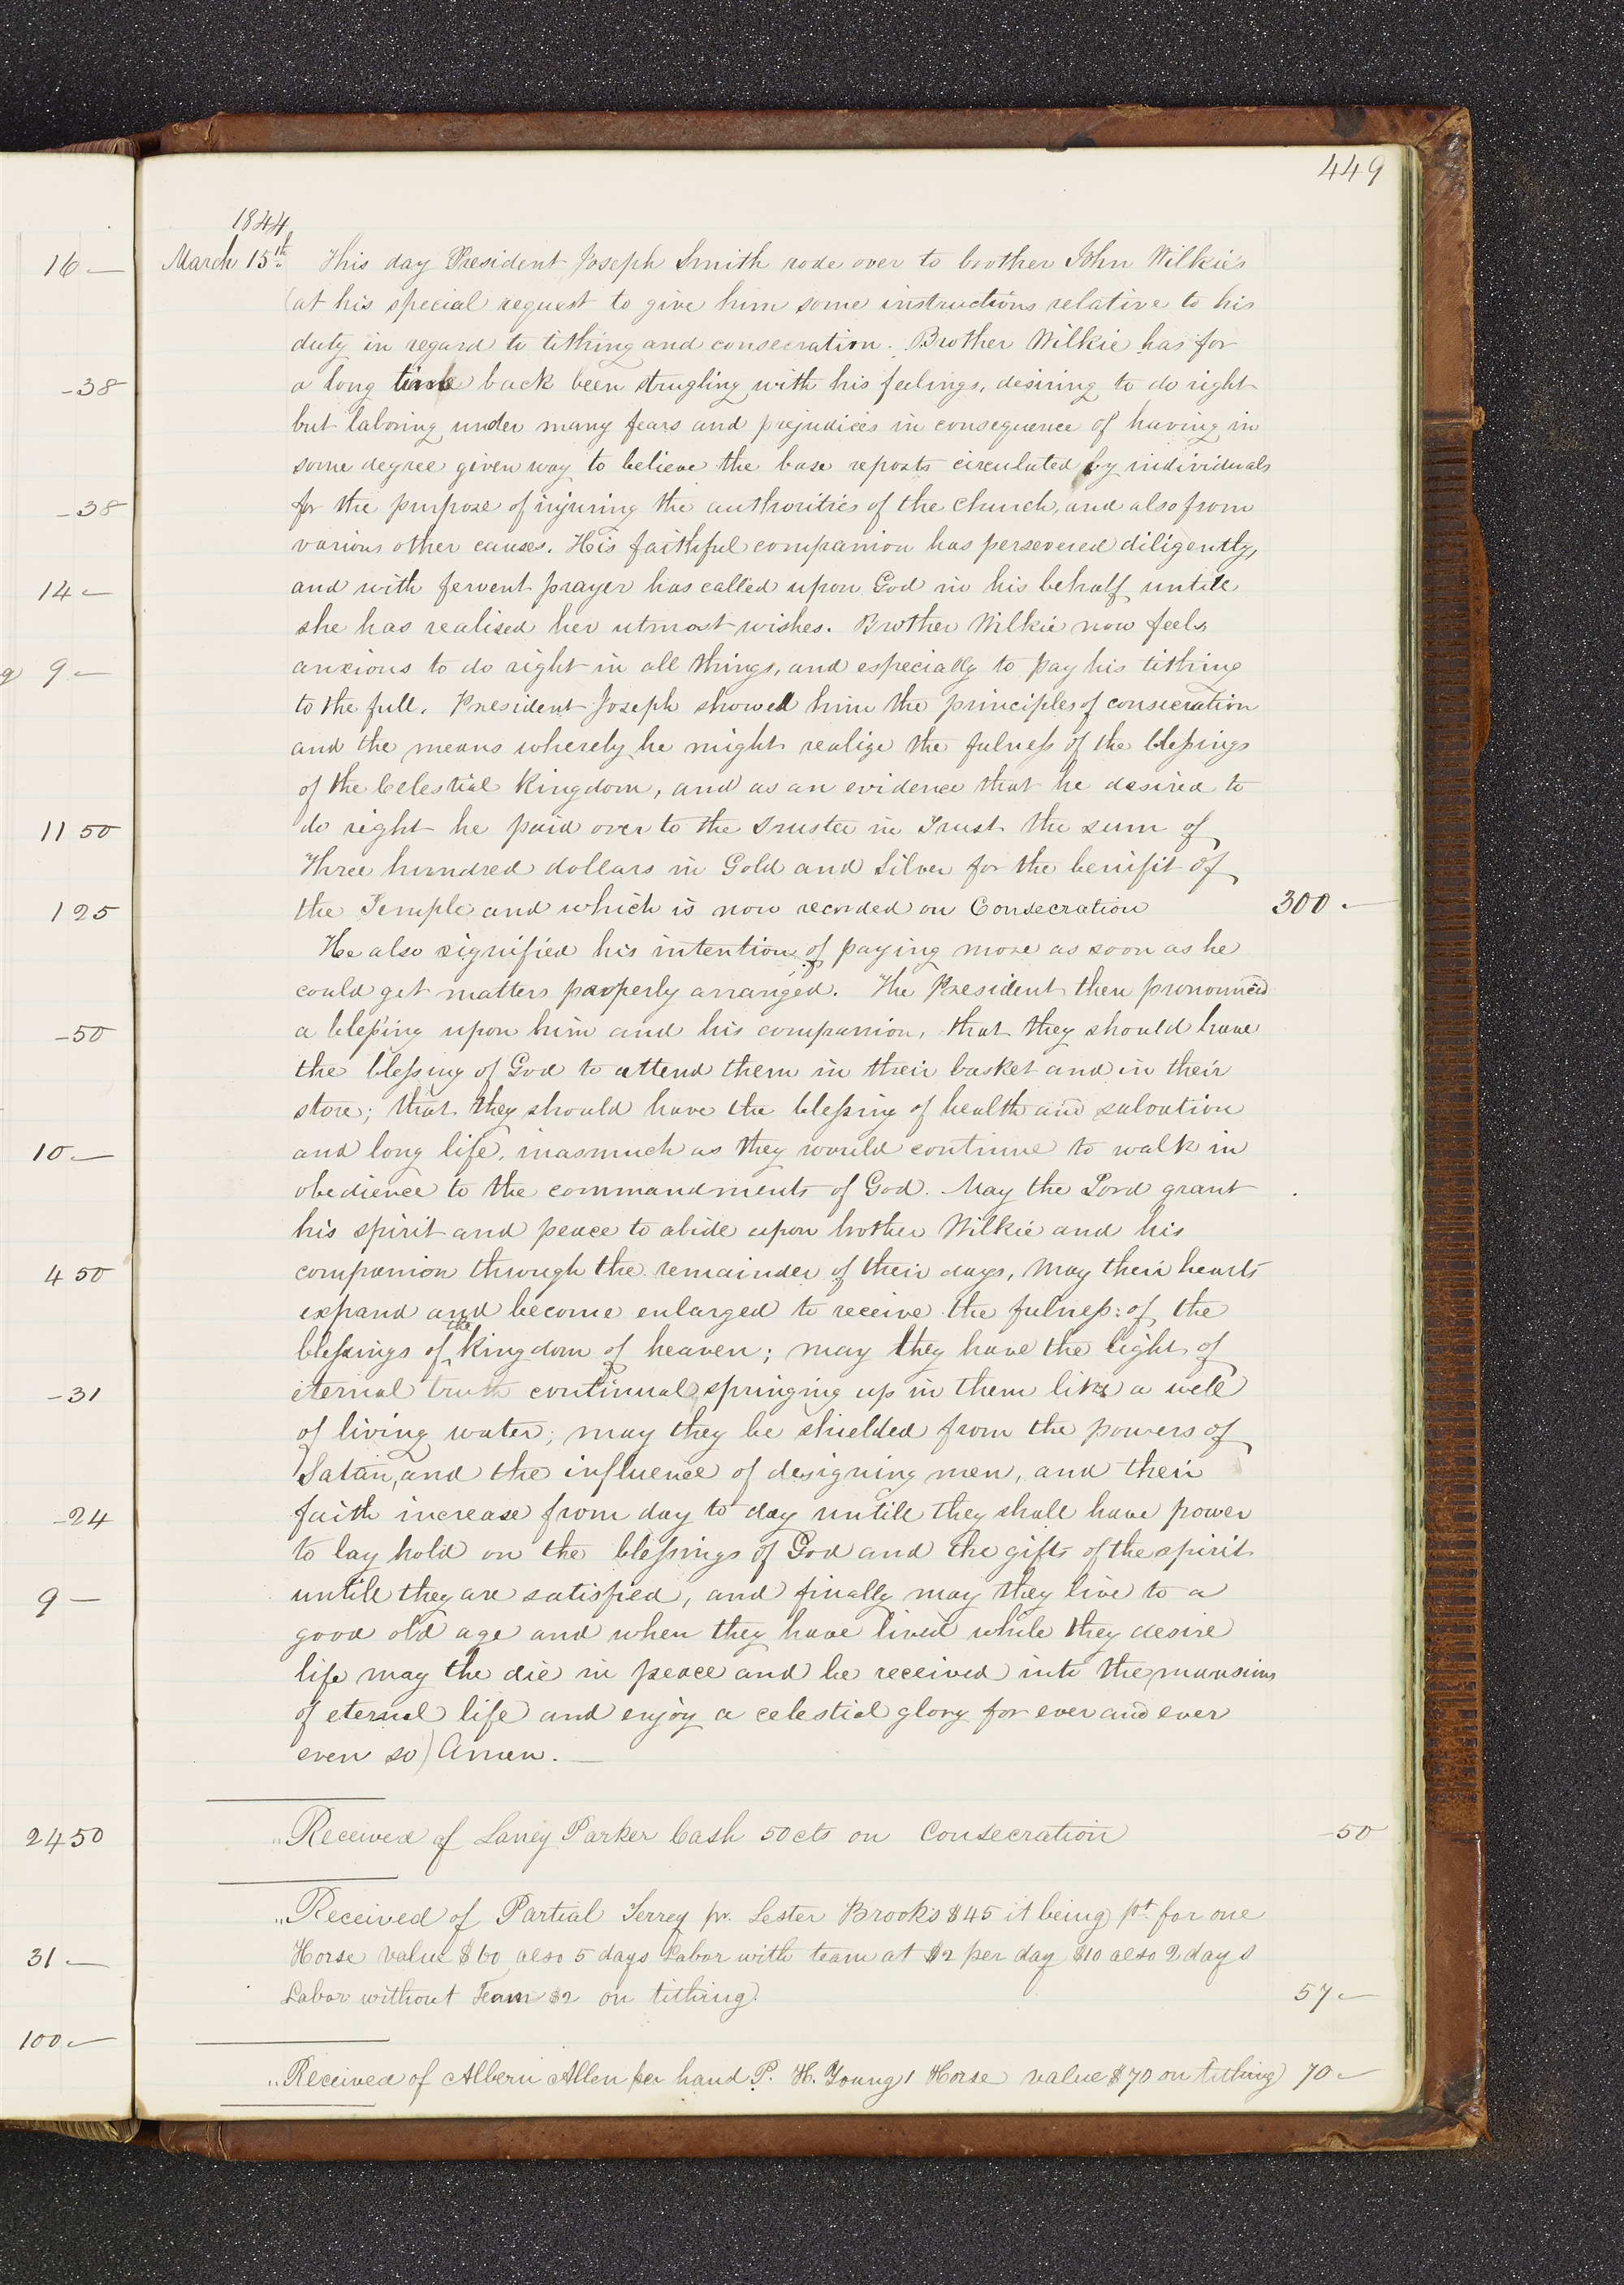 449
1844
March 15th. This day President Joseph Smith rode over to brother John Wilkie's
(at his special request to give him some instructions relative to his
duty in regard to tithing and consecration. Brother Wilkie has for
a long time back been strugling with his feelings, desiring to do right
but laboring under many fears and prejudices in consequence of having in
some degree given way to believe the base reports circulated by individuals
for the purpose of injuring the authorities of the church, and also from
various other causes. His faithful companion has persevered diligently,
and with fervent prayer has called upon God in his behalf untill
she has realised her utmost wishes. Brother Wilkie now feels
anxious to do right in all things, and especially to pay his tithing
to the full. President Joseph showed him the principles of consecration
and the means whereby he might realize the fulness of the blessings
of the Celestial Kingdom, and as an evidence that he desired to
do right he paid over to the Trustee in Trust the sum of
Three hundred dollars in Gold and Silver for the benifit of
the Temple and which is now recorded on Consecration 300 -
He also signified his intention of paying more as soon as he
could get matters properly arranged. The President then pronounced
a blessing upon him and his companion, that they should have
the blessing of God to attend them in their basket and in their
store; that they should have the blessing of health and salvation
and long life, inasmuch as they would continue to walk in
obedience to the commandments of God. May the Lord grant
his spirit and peace to abide upon brother Wilkie and his
companion through the remainder of their days, may their hearts
expand and become enlarged to receive the fulness: of the
blessings of the kingdom of heaven; may they have the light of
eternal truth continual springing up in them like a well
of living water; may they be shielded from the powers of
Satan, and the influence of designing men, and their
faith increase from day to day untill they shall have power
to lay hold on the blessings of God and the gifts of the spirit
untill they are satisfied, and finally may they live to a
good old age and when they have lived while they desire
life may the die in peace and be received into the mansions
of eternal life and enjoy a celestial glory for ever and ever
even so) Amen. —
" Received of Laney Parker Cash 50cts on Consecration -50
" Received of Partial Terrey pr. Lester Brooks $45 it being pt. for one
Horse value $60 also 5 days Labor with team at $2 per day $10 also 2 days
Labor without Team $2 on tithing. 57 -
" Received of Albern Allen per hand P. H. Young 1 Horse value $70 on tithing 70 -
16 —
-38
-38
14 —
9 —
11 50
1 25
-50
10 —
4 50
-31
-24
9 —
24 50
31 —
100 —